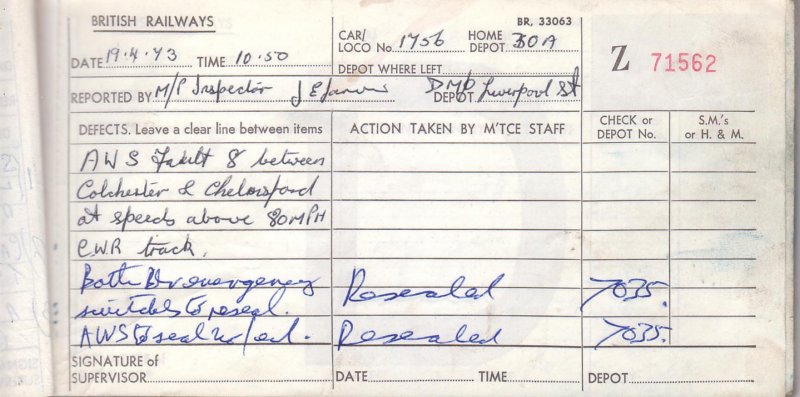 BRITISH RAILWAYS
BR. 33063
DATE 19.4.73 TIME 10.50
CAR/ LOCO No. 1756 HOME DEPOT 30A
Z 71562
DEPOT WHERE LEFT
REPORTED BY M/P Inspector J E DEPOT Liverpool St
DEFECTS. Leave a clear line between items
ACTION TAKEN BY M'TCE STAFF
CHECK or DEPOT No.
S.M.'s or H. & M.
AWS Fault 8 between
Colchester & Chelmsford
at speeds above 80 MPH
C.W.R track.
Both emergency
to reseal. Resealed 7035.
AWS to seal Resealed 7035.
SIGNATURE of SUPERVISOR
DATE TIME DEPOT